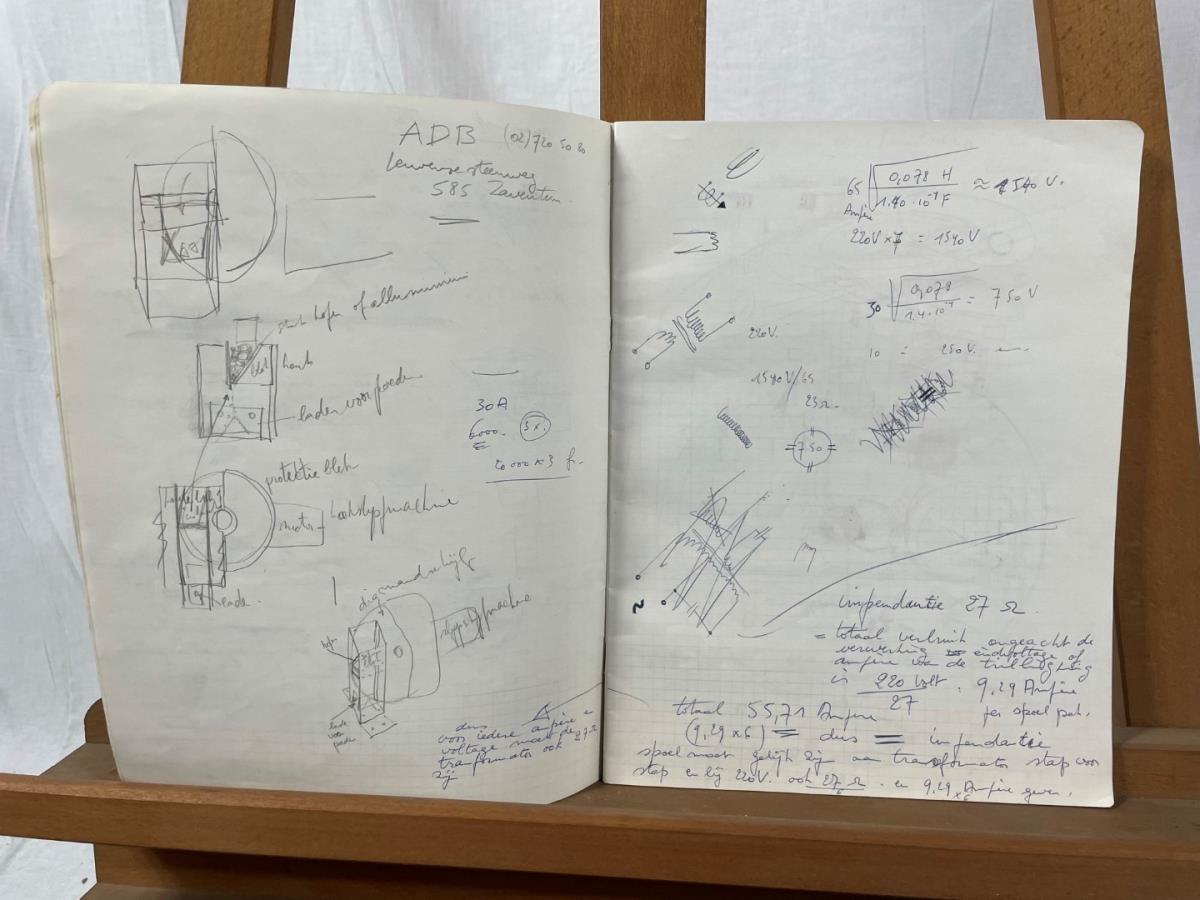 ADB (02) 720 50 80
Leuvensesteenweg
585 Zaventem.
of alluminium
blok
hout
lader voor poeder
30A
6000. 5x.
20 000 x 3 f.
protektie blek
motor
diamandschijf
machine
dus
voor iedere ampère e
voltage moet de
tranformator ook 27 Ω
zij
65 √ 0,078 H / 1.40 · 10⁻⁴ F ≈ 1540 V.
Ampère
220V x 7 = 1540 V
30 √ 0,078 / 1.4 · 10⁻⁴ = 750 V
10 = 250 V.
220V.
1540 V/65
23 Ω.
= 750 =
~
impendantie 27 Ω.
= totaal verbruik ongeacht de
verwerking eindvoltage of
ampère van de trillingskring
is 220 volt / 27 = 9,29 Ampère
per spoel pak.
totaal 55,71 Ampère
(9,29 x 6) = dus = impendantie
spoel moet gelijk zij aan transformator stap voor
stap en bij 220V. ook 27 Ω / 6 . e 9,29 x 6 Ampère geven.